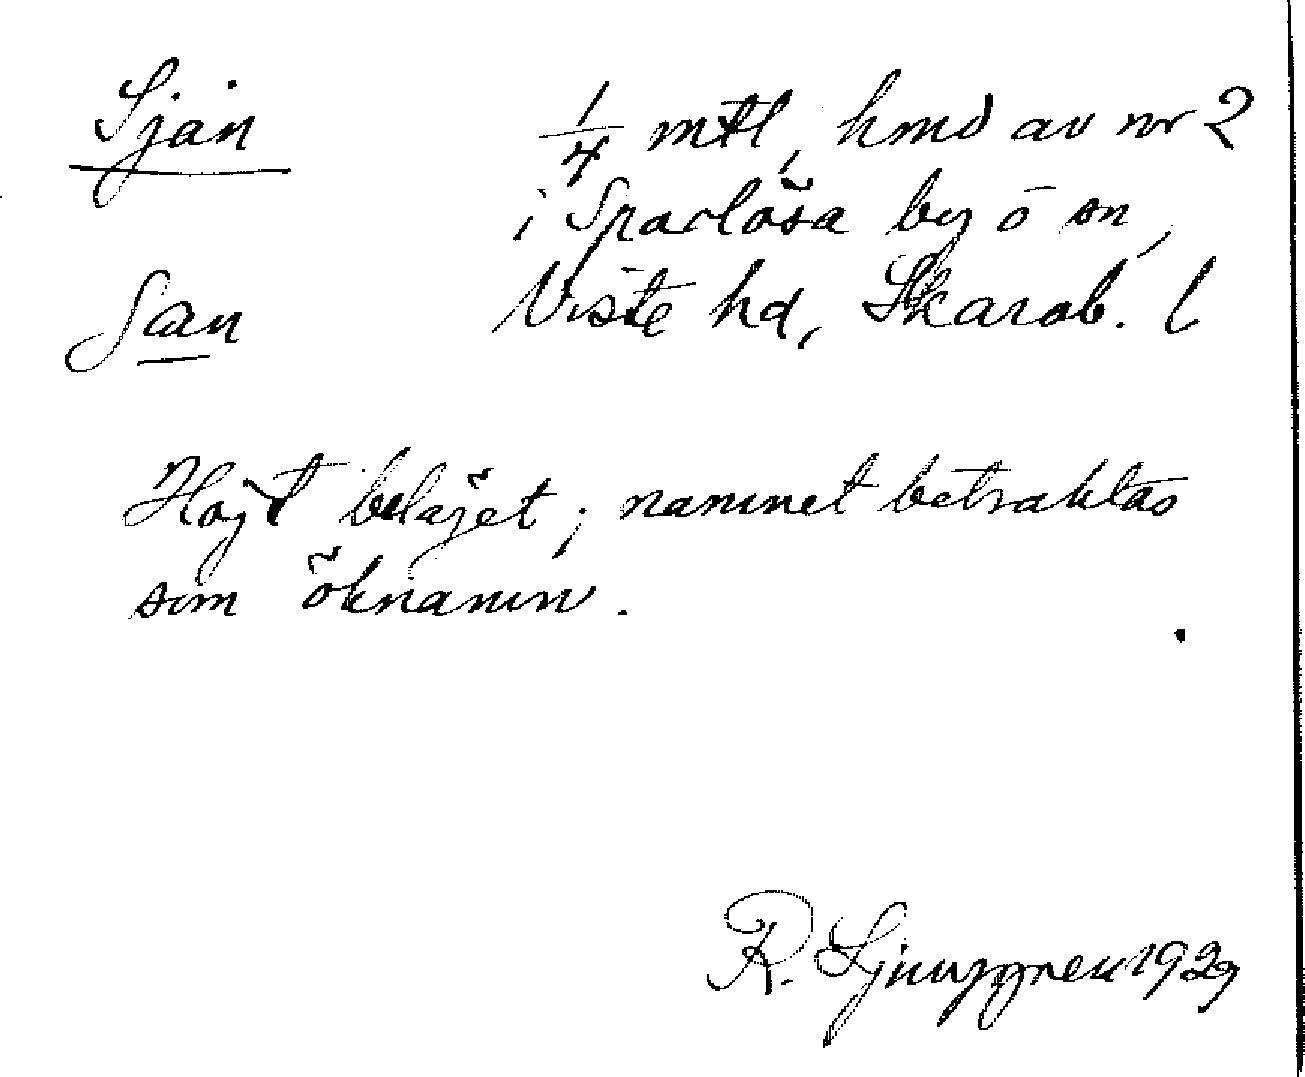 Sjän
1/4 mtl, hmd av nr 2
i Sparlösa by o sn,
Viste hd, Skarab. l
San
Höjt beläget; namnet betraktas
som öknamn.
R. Ljunggren 1929